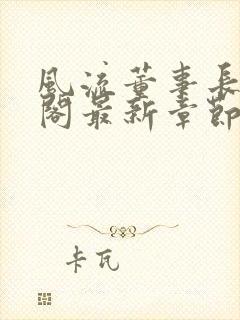 风流董事长
阁最新章节
卡瓦